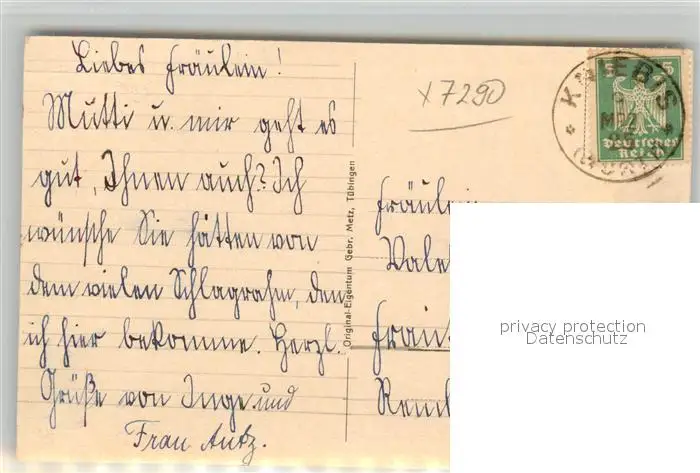 Liebes Fräulein!
Mutti u. mir geht es
gut, Ihnen auch? Ich
wünsche Sie hätten von
dem vielen Schlagrahm, den
ich hier bekomme. Herzl.
Grüße von Inge und
Frau Antz.
Original-Eigentum Gebr. Metz, Tübingen
x7290
KNIEBIS
MRZ
5
Deutsches
Reich
Fräulein
privacy protection
Datenschutz